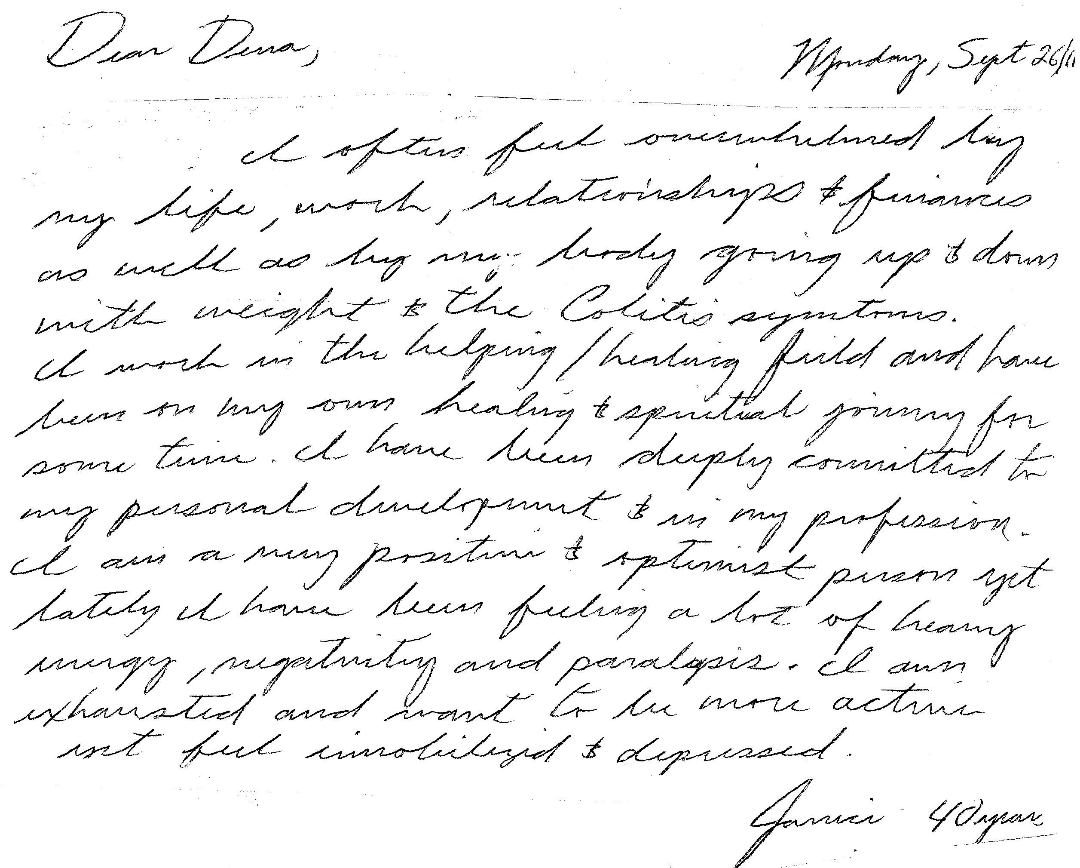 Dear Dena,
Monday, Sept 26/11
I often feel overwhelmed by
my life, work, relationships & finances
as well as by my body going up & down
with weight & the Colitis symtoms.
I work in the helping/healing field and have
been on my own healing & spiritual journy for
some time. I have been deeply committed to
my personal development & in my profession.
I am a very positive & optimist person yet
lately I have been feeling a lot of heavy
energy, negativity and paralysis. I am
exhausted and want to be more active
yet feel immobilized & depressed.
Janice 40 years